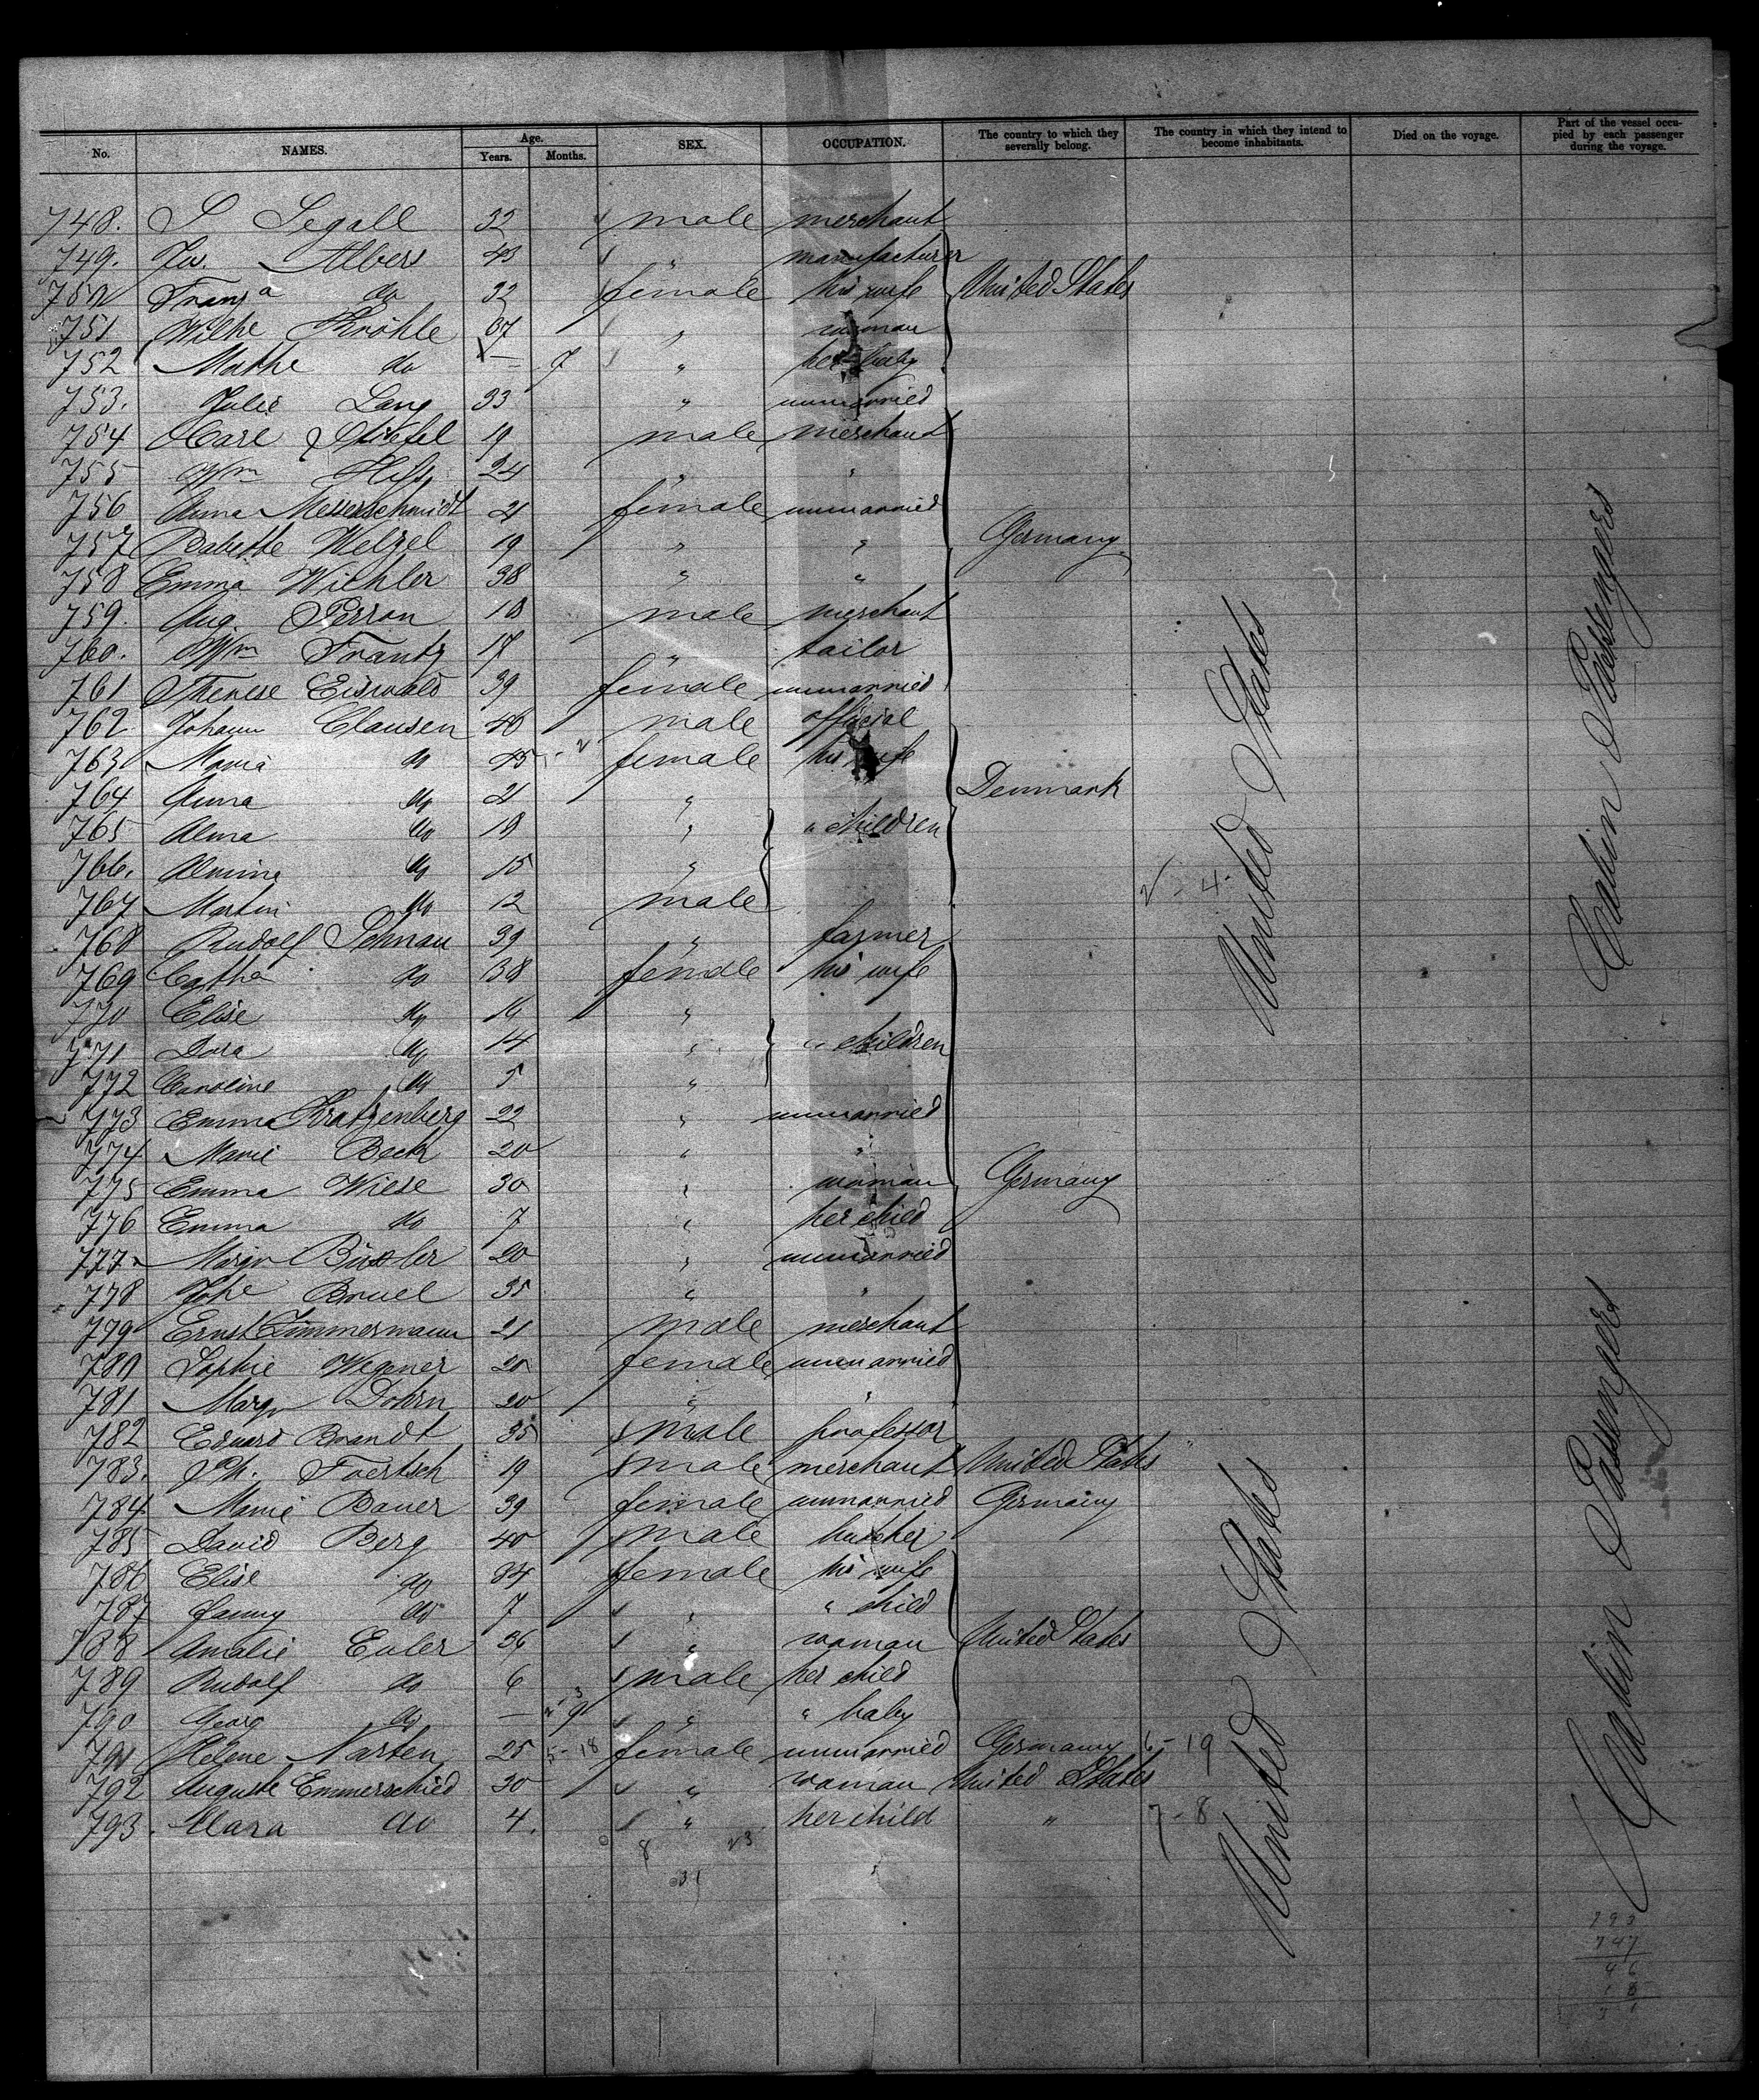 No. NAMES. Age. Years. Months. SEX. OCCUPATION. The country to which they severally belong. The country in which they intend to become inhabitants. Died on the voyage. Part of the vessel occupied by each passenger during the voyage.
748. S Segall 32 male merchant
749. Albers 43 " manufacturer
750 Franz a do 32 female his wife United States
751 Wilhe Knöhle 37 " woman
752 Mathe do — 7 " her baby
753. Julie Lang 33 " unmarried
754 Carl Stiefel 19 male merchant
755 Wm 24 " "
756 Anna Messerschmidt 21 female unmarried
757 Babette Welzel 19 " " Germany
758 Emma Wichler 38 " "
759. Aug. Perron 18 male merchant
760. Wm Frantz 17 " tailor
761 Therese Eiswald 39 female unmarried
762 Johann Clausen 46 male official
763 Maria do 45 female his wife
764 Anna do 21 " Denmark
765 Alma do 18 " " children
766. do 15 "
767 Martin do 12 male
768 Rudolf Schnau 39 " farmer
769 Catha do 38 female his wife
770 Elise do 19 "
771 Dora do 14 " " children
772 Caroline do 5 "
773 Emma Kratzenberg 22 " unmarried
774 Marie Beck 20 " "
775 Emma Wiese 30 " woman Germany
776 Emma do 7 " her child
777 Margr Büxler 20 " unmarried
778 Johe Bruel 35 " "
779 Ernst Zimmermann 21 male merchant
780 Sophie Wegner 20 female unmarried
781 Margr Dohrn 20 " "
782 Eduard Brandt 35 male professor
783. Ph. Foertsch 19 male merchant United States
784. Marie Bauer 39 female unmarried Germany
785 David Berg 40 male butcher
786 Elise do 34 female his wife
787 Fanny do 7 " " child
788 Amalie Euler 36 " woman United States
789 Rudolf do 6 male her child
790 Georg do — 9 " " baby
791 Helene Narten 25 5-18 female unmarried Germany 6-19
792 Auguste Emmerschied 30 " woman United States
793. Clara do 4. " her child " 7-8
8 23
31
United States
United States
Cabin Passengers
Cabin Passengers
793
747
46